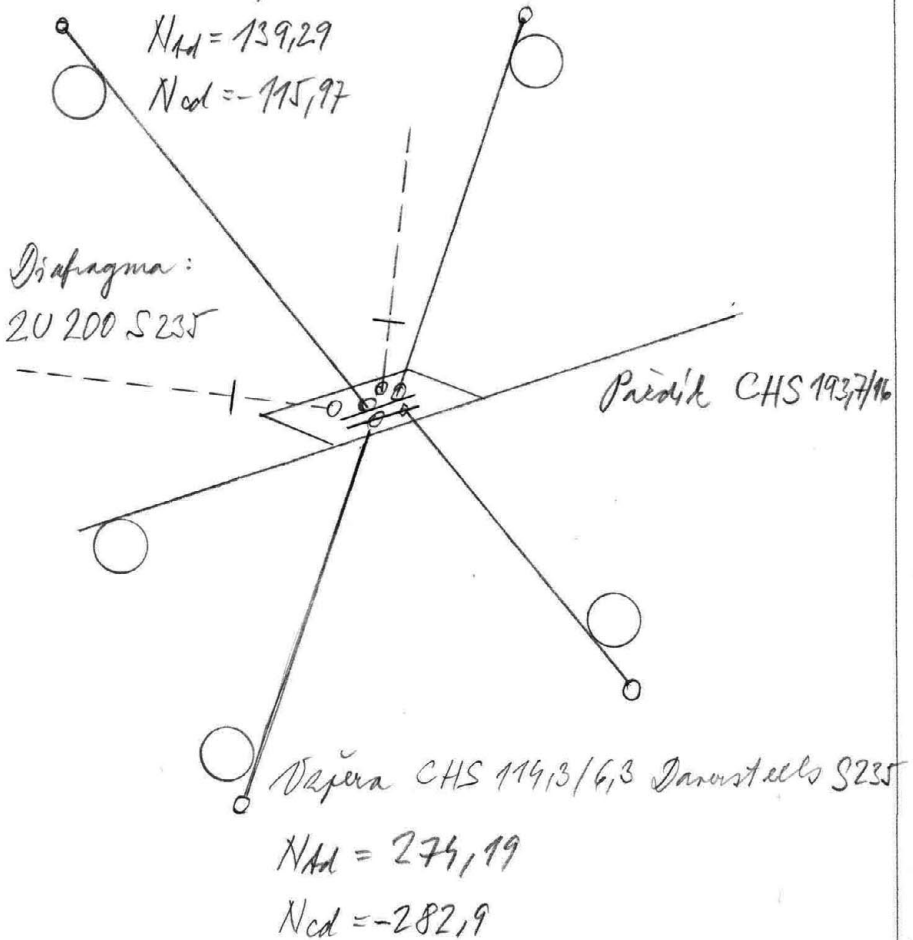 Ntd = 139,29
Ncd = -115,97
Diafragma:
2U 200 S235
CHS 193,7/16
Vzpěra CHS 114,3/6,3 S235
Ntd = 274,19
Ncd = -282,9